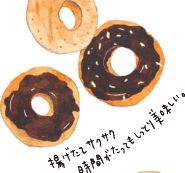 揚げたてサクサク
時間がたってもしっとり美味しい。